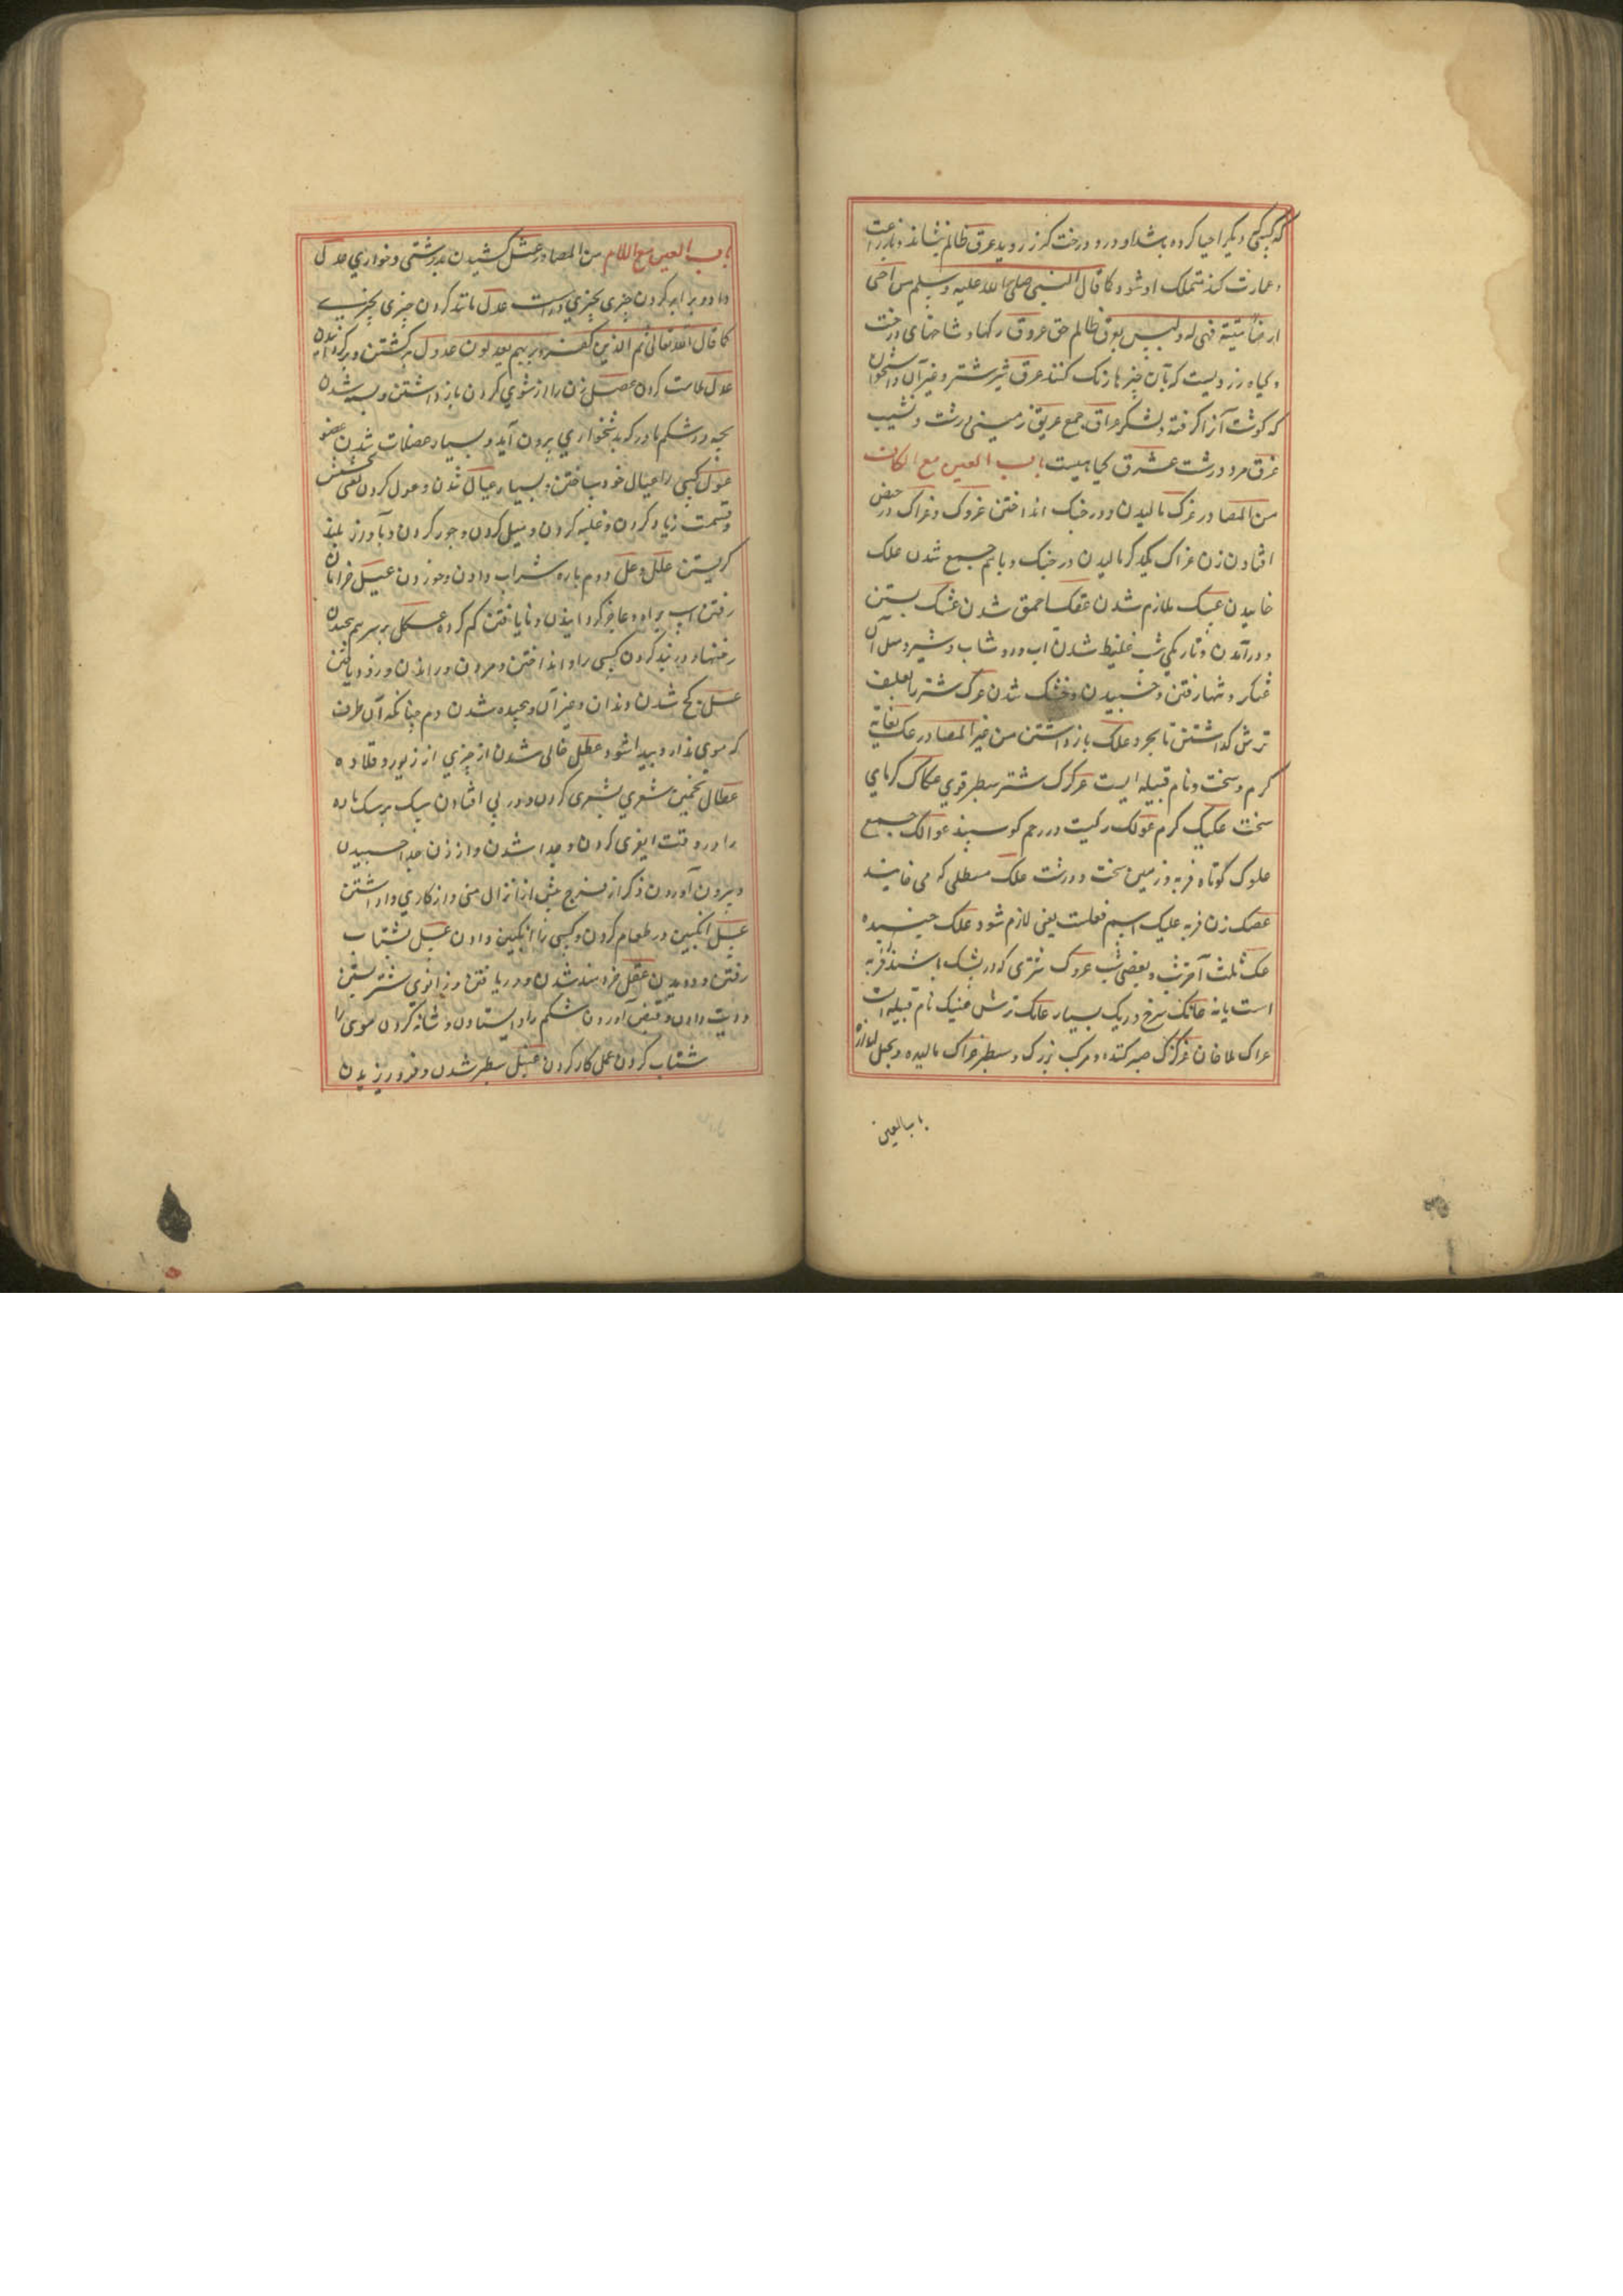 که کسی دیگر احیا کرده باشد او درو درخت کرز روید عرق ظالم بنشاند و بازراعت
و عمارت کند تملک او شود کما قال النبی صلی الله علیه و سلم من احیی
ارضا میتة فهی له و لیس لعرق ظالم حق عروق رکها و شاخهای درخت
و کیاه زردیست که بآن چیزها رنک کنند عرق شیر شتر و غیر آن و استخوان
که کوشت آنرا کرفته و لشکر عراق جمع عریق زمینی درشت و نشیب
عزق مرد درشت عشرق کیاهیست باب العین مع الکاف
من المصادر عرک مالیدن و در جنک انداختن عروک و عراک در حیض
افتادن زن عراک یکدیکر مالیدن در جنک و باهم جمع شدن علک
خاییدن عسک ملازم شدن عفک احمق شدن عتک بستن
و درآمدن و تاریکی شب غلیظ شدن اب و دوشاب و شیر و مثل آن
و تنها رفتن و خسبیدن و خشک شدن عرک شتر را بعلف
ترش کذاشتن تا بچرد علک باز داشتن من غیر المصادر عک بغایة
کرم و سخت و نام قبیله ایست عرکرک شتر سطبر قوی عکاک کرمای
سخت عکیک کرم عولک رکیست در رحم کوسپند عوالک جمع
علوک کوتاه فربه و زمین سخت و درشت علک مصطکی که می خایند
عضنک زن فربه علیک اسم فعلست یعنی لازم شو و علک چسپنده
عتک ثلث آخر شب و بعضی شب عروک شتری که در شک باشند فربه
است یا نه عاتک سرخ و ریک بسیار عانک ترش عتیک نام قبیله است
عراک ملاحان عرکرک و مرکب بزرک و سطبر عراک مالیده و بخیل
باب العین
باب العین مع اللام من المصادر عتل کشیدن بدرشتی و خواری عدل
داد و برابر کردن چیزی بچیزی و راست عدل مانند کردن چیزی بچیزی
کما قال الله تعالی ثم الذین کفروا بربهم یعدلون عدول برکشتن و برکردانیدن
عذل ملامت کردن عضل زن را از شوی کردن باز داشتن و بسته شدن
بچه در شکم مادر که بدشخواری برون آید و بسیار عضلات شدن عضو
عول کسی را عیال خود ساختن و بسیار عیال شدن و عول کردن یعنی بخشش
و قسمت زیاد کردن و غلبه کردن و میل کردن و جور کردن و بآواز بلند
کریستن علل و عل دوم باره شراب دادن و خوردن عیل خرامان
رفتن اسب و عاجز کردانیدن و نایافتن کم کرده عسکل بر سر هم نهادن
رختها و در بند کردن کسی را و انداختن و مردن و راندن و زود یافتن
عصل کج شدن دندان و غیر آن و پیچیده شدن دم چنانکه آن طرف
که موی ندارد پیدا شود عطل خالی شدن از چیزی از زیور و قلاده
عظال تضمین شعری بشعری کردن و در پی افتادن سک بر سک ماده
را در وقت و جدا شدن و از زن جدا خسبیدن
و بیرون آوردن ذکر از فرج پیش از انزال منی و از کاری وا داشتن
عسل انکبین در طعام کردن و کسی را انکبین دادن عسل بشتاب
رفتن و دویدن عقل خردمند شدن و دریافتن و زانوی شتر بستن
و دیت دادن و قبض آوردن شکم را و ایستادن و شانه کردن موی را
شتاب کردن عمل کار کردن عبل سطبر شدن و فرو ریزیدن